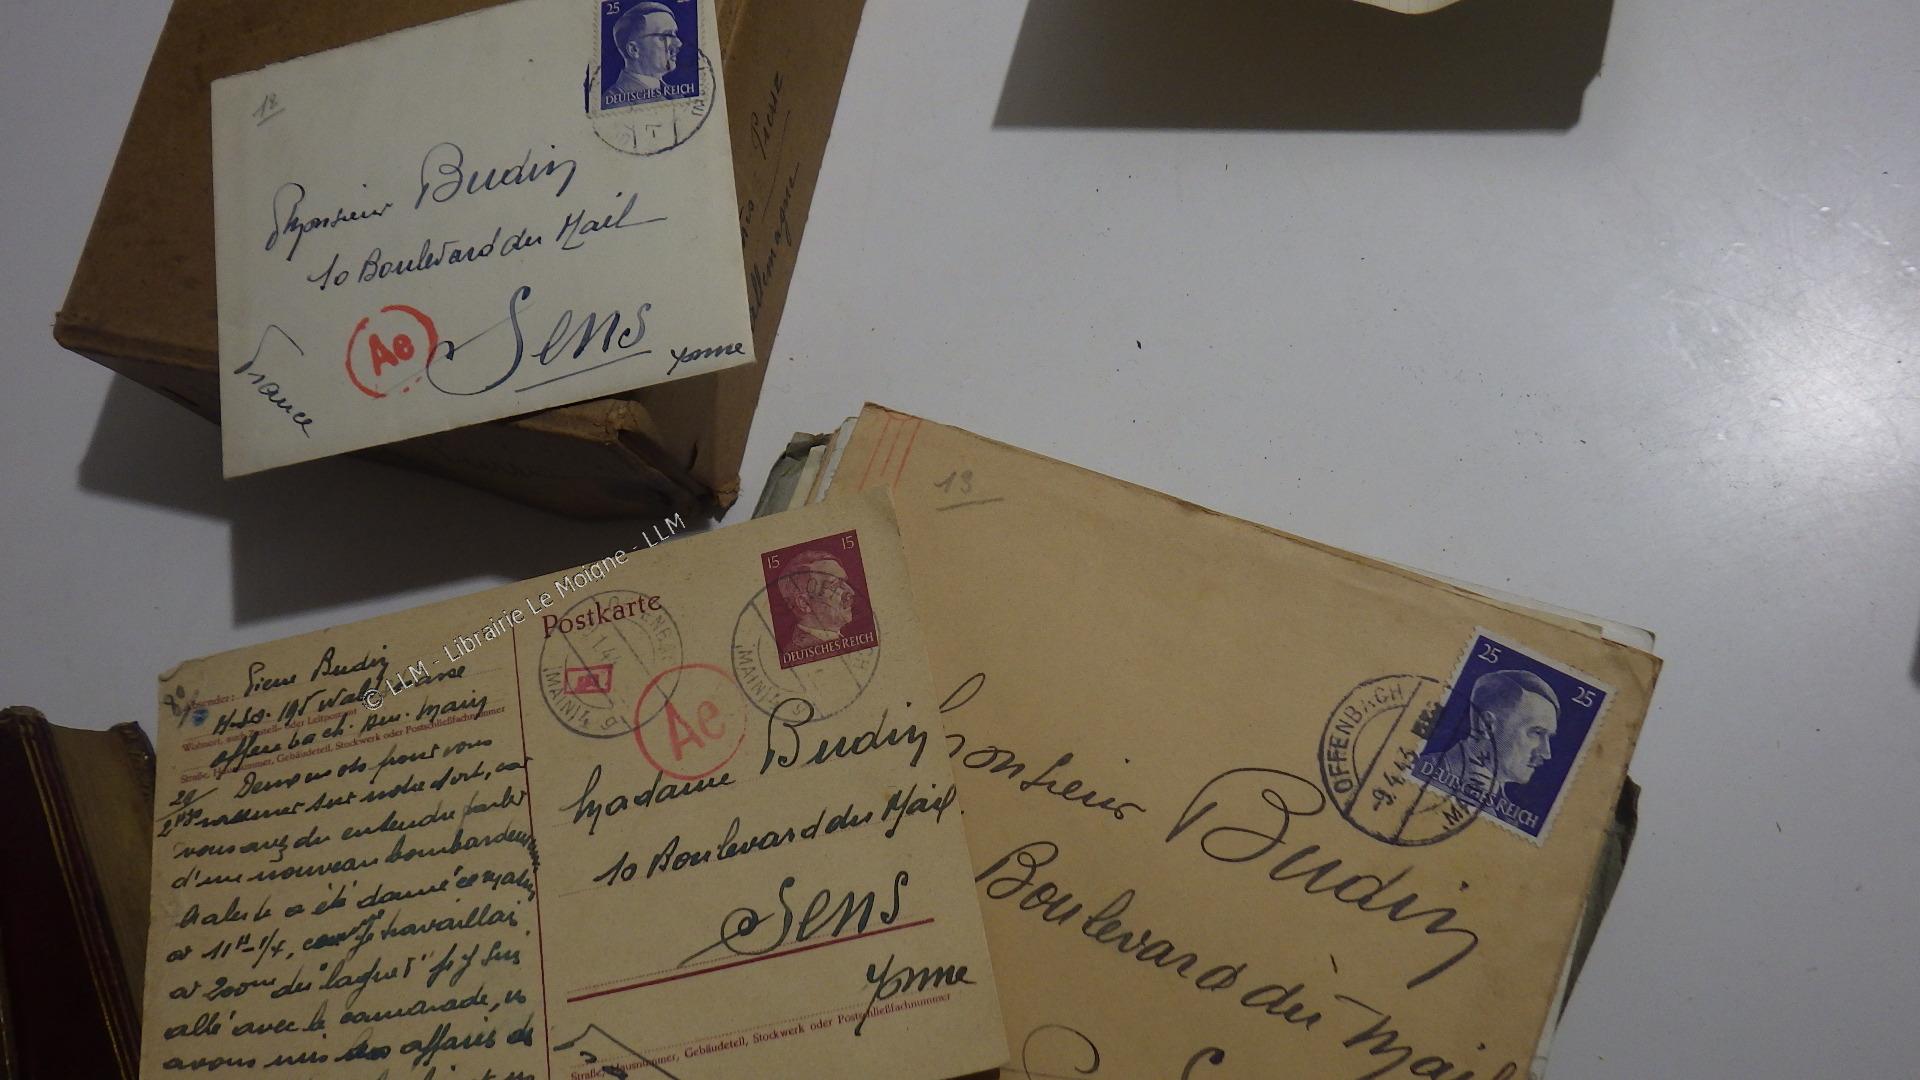 25
DEUTSCHES REICH
18
Monsieur Budin
10 Boulevard du Mail
Sens
Yonne
France
Ae
Allemagne
© LLM - Librairie Le Moigne - LLM
Postkarte
15 15
DEUTSCHES REICH
(MAIN) 4
g
Ae
Absender: Pierre Budin
Wohnort, auch Zustell- oder Leitpostamt
Offenbach am Main
Straße, Hausnummer, Gebäudeteil, Stockwerk oder Postschließfachnummer
pour vous
sur notre sort, car
vous avez du entendre parler
d'un nouveau bombardement
l'alerte a été donné ce matin
à 11H 1/4, je travaillais
à 200m du
allé avec le camarade,
avons mis les affaires de
Madame Budin
10 Boulevard du Mail
Sens
Yonne
Straße, Hausnummer, Gebäudeteil, Stockwerk oder Postschließfachnummer
19
25 25
DEUTSCHES REICH
OFFENBACH
-9.4.43
(MAIN) 4
Monsieur Budin
Boulevard du Mail